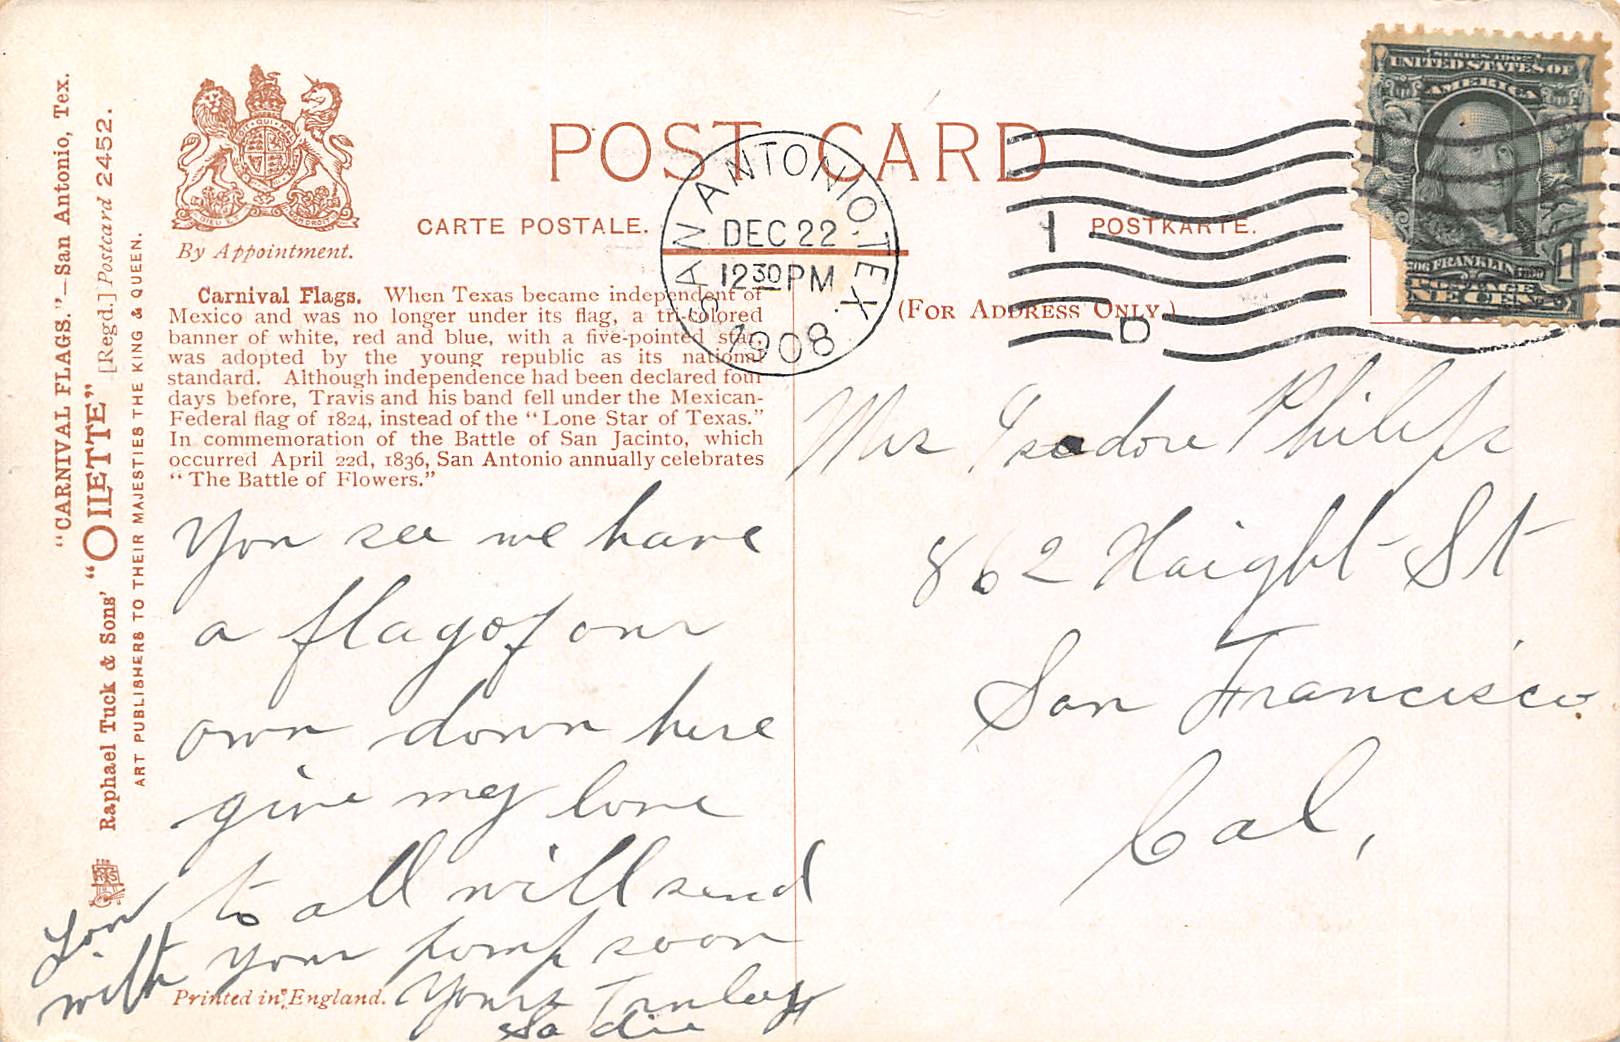 "CARNIVAL FLAGS."—San Antonio, Tex.
Raphael Tuck & Sons' "OILETTE" [Regd.] Postcard 2452.
ART PUBLISHERS TO THEIR MAJESTIES THE KING & QUEEN.
By Appointment.
POST CARD
CARTE POSTALE.
POSTKARTE.
(FOR ADDRESS ONLY.)
SAN ANTONIO, TEX.
DEC 22
12 30 PM
1908
1
D
SERIES 1902
UNITED STATES OF
AMERICA
FRANKLIN
POSTAGE
1
Carnival Flags. When Texas became independent of
Mexico and was no longer under its flag, a tri-colored
banner of white, red and blue, with a five-pointed star
was adopted by the young republic as its national
standard. Although independence had been declared four
days before, Travis and his band fell under the Mexican-
Federal flag of 1824, instead of the "Lone Star of Texas."
In commemoration of the Battle of San Jacinto, which
occurred April 22d, 1836, San Antonio annually celebrates
"The Battle of Flowers."
You see we have
a flag of our
own down here
give my love
to all will send
your pomp soon
Yours Truley
Sadie
with
Printed in England.
Mrs Isadore Philips
862 Haight St
San Francisco
Cal,